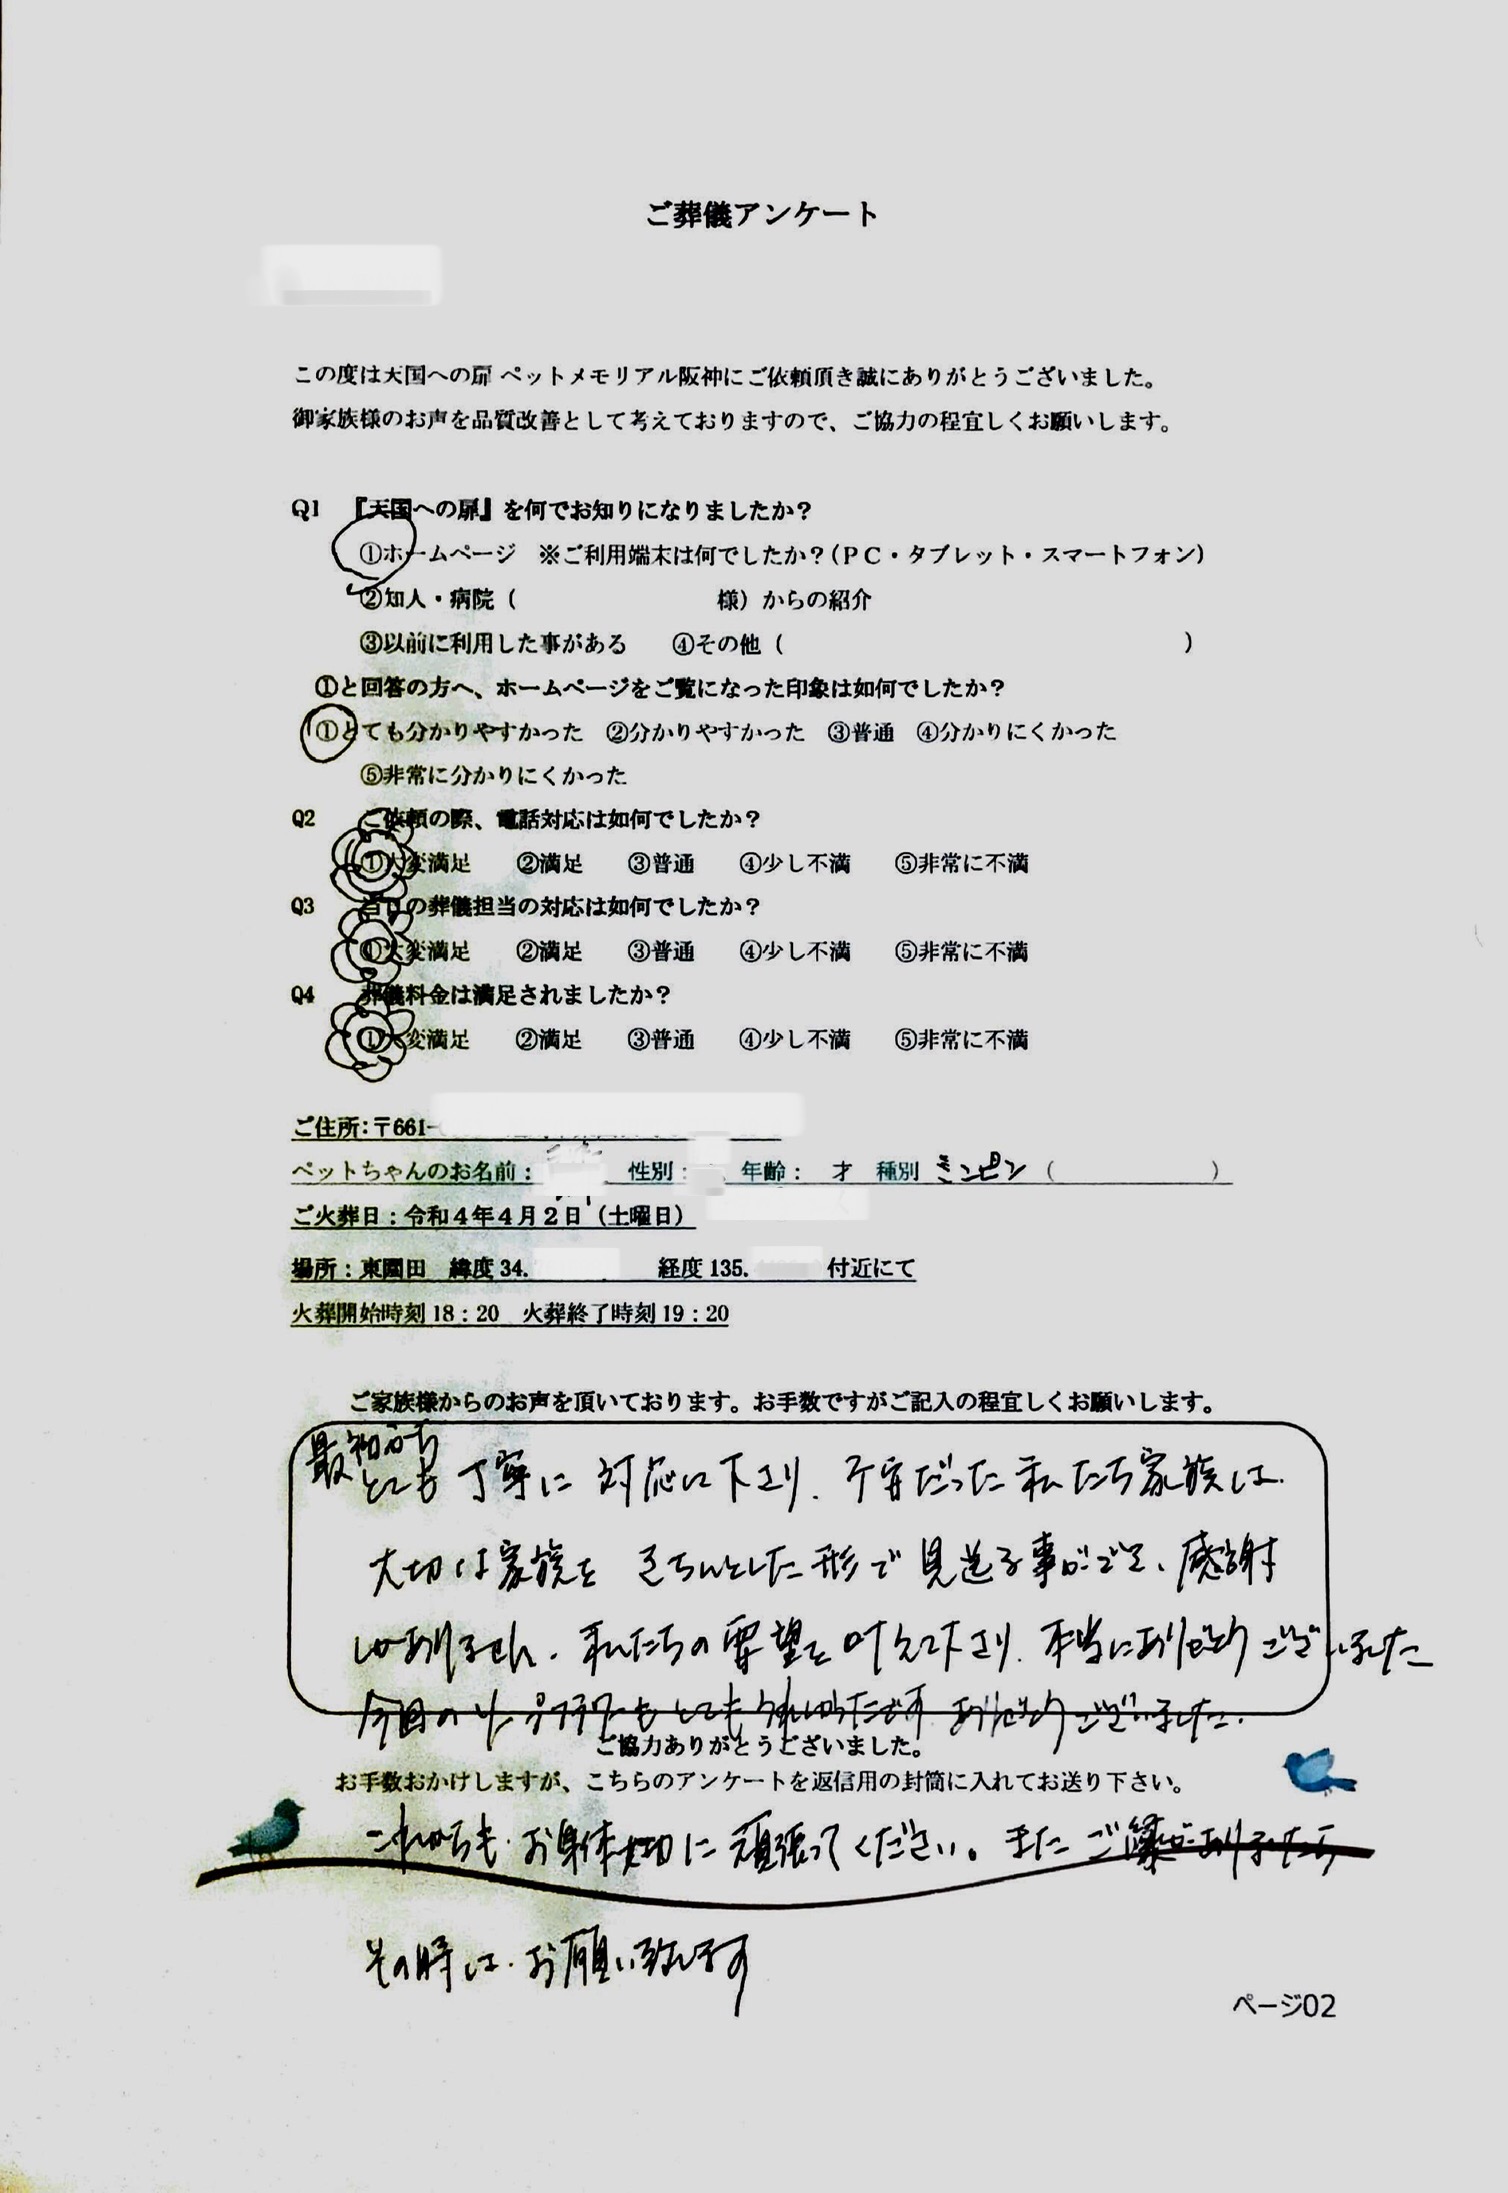 ご葬儀アンケート
この度は天国への扉 ペットメモリアル阪神にご依頼頂き誠にありがとうございました。
御家族様のお声を品質改善として考えておりますので、ご協力の程宜しくお願いします。
Q1 『天国への扉』を何でお知りになりましたか？
①ホームページ ※ご利用端末は何でしたか？（ＰＣ・タブレット・スマートフォン）
②知人・病院（ 様）からの紹介
③以前に利用した事がある ④その他（ ）
①と回答の方へ、ホームページをご覧になった印象は如何でしたか？
①とても分かりやすかった ②分かりやすかった ③普通 ④分かりにくかった
⑤非常に分かりにくかった
Q2 ご依頼の際、電話対応は如何でしたか？
①大変満足 ②満足 ③普通 ④少し不満 ⑤非常に不満
Q3 当日の葬儀担当の対応は如何でしたか？
①大変満足 ②満足 ③普通 ④少し不満 ⑤非常に不満
Q4 葬儀料金は満足されましたか？
①大変満足 ②満足 ③普通 ④少し不満 ⑤非常に不満
ご住所：〒661-
ペットちゃんのお名前： 性別： 年齢： 才 種別 ミンピン （ ）
ご火葬日：令和４年４月２日（土曜日）
場所：東園田 緯度 34. 経度 135. 付近にて
火葬開始時刻 18：20 火葬終了時刻 19：20
ご家族様からのお声を頂いております。お手数ですがご記入の程宜しくお願いします。
最初から
とても丁寧に対応して下さり、不安だった私たち家族は、
大切な家族を きちんとした形で見送る事ができ、感謝
しかありません。私たちの要望を叶えて下さり、本当にありがとうございました
今回の フラワーもとてもうれしかったです ありがとうございました。
ご協力ありがとうございました。
お手数おかけしますが、こちらのアンケートを返信用の封筒に入れてお送り下さい。
これからも、お身体大切に頑張ってください。またご縁がありましたら
その時は、お願い致します
ページ02